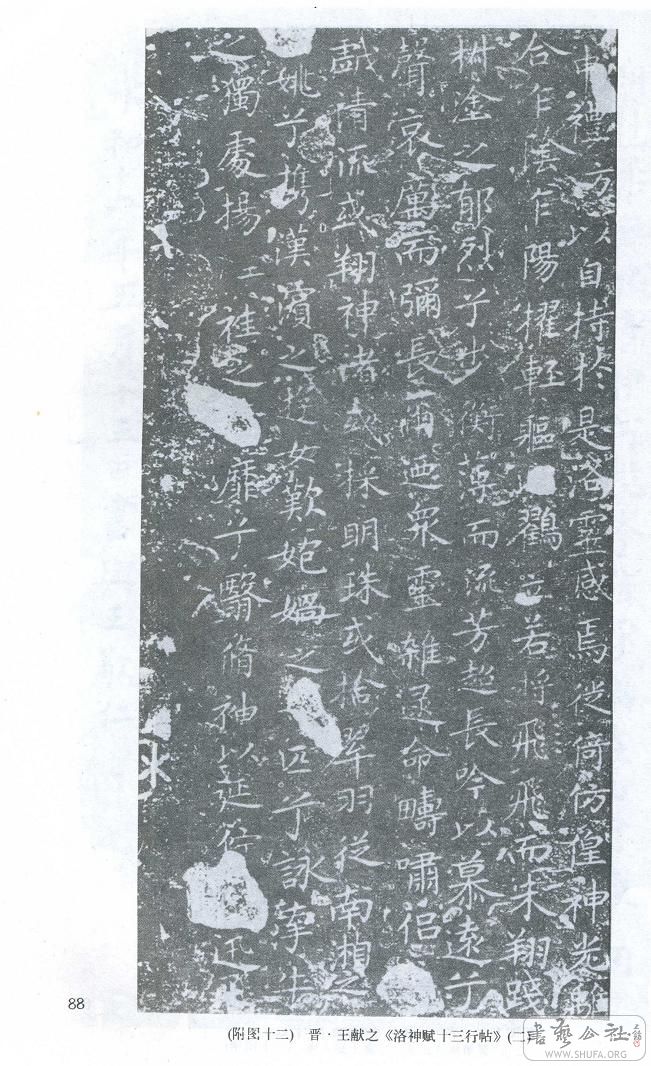 申禮方以自持於是洛靈感焉徙倚仿偟神光離
合乍陰乍陽擢輊軀以鶴立若將飛飛而未翔踐
椒塗之郁烈兮步衡薄而流芳超長吟以慕遠兮
聲哀厲而彌長爾迺衆靈雜遝命疇嘯侶
戲清流或翔神渚或採明珠或拾翠羽從南湘之
姚兮攜漢濱之遊女歎匏媧之匹兮詠牽牛
之獨處揚袿之靡兮翳脩袖以延佇迅
88
(附图十二) 晋·王献之《洛神赋十三行帖》(二)
書藝公社
WWW.SHUFA.ORG